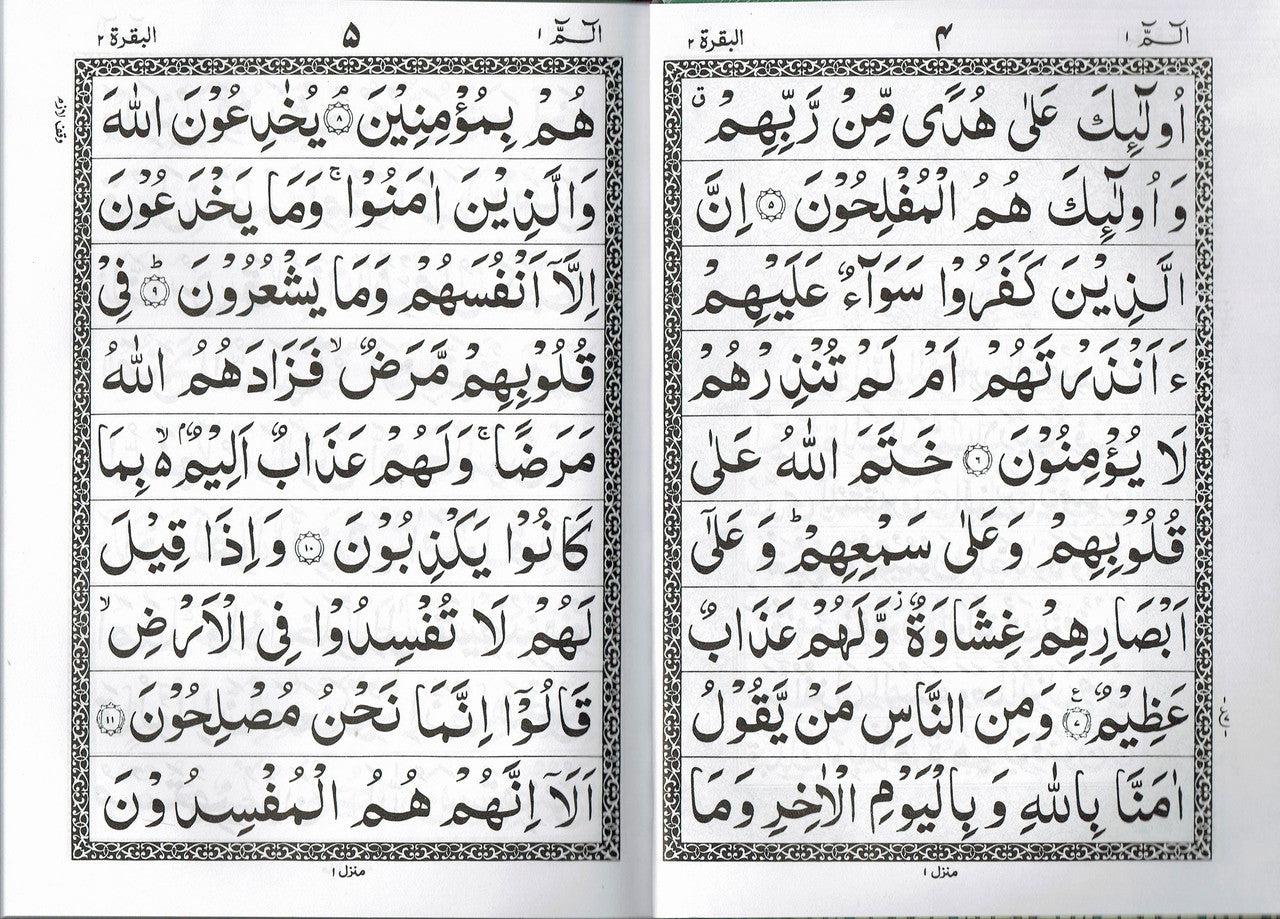 الٓمّٓ ١
٤
البقرة ٢
اُولٰٓئِكَ عَلٰى هُدًى مِّنْ رَّبِّهِمْ ۗ
وَاُولٰٓئِكَ هُمُ الْمُفْلِحُوْنَ ۝٥ اِنَّ
الَّذِيْنَ كَفَرُوْا سَوَآءٌ عَلَيْهِمْ
ءَاَنْذَرْتَهُمْ اَمْ لَمْ تُنْذِرْهُمْ
لَا يُؤْمِنُوْنَ ۝٦ خَتَمَ اللّٰهُ عَلٰى
قُلُوْبِهِمْ وَعَلٰى سَمْعِهِمْ ؕ وَعَلٰٓى
اَبْصَارِهِمْ غِشَاوَةٌ ؗ وَّلَهُمْ عَذَابٌ
عَظِيْمٌ ۝٧ ع وَمِنَ النَّاسِ مَنْ يَّقُوْلُ
اٰمَنَّا بِاللّٰهِ وَبِالْيَوْمِ الْاٰخِرِ وَمَا
منزل ١
الٓمّٓ ١
٥
البقرة ٢
هُمْ بِمُؤْمِنِيْنَ ۘ ۝٨ يُخٰدِعُوْنَ اللّٰهَ
وَالَّذِيْنَ اٰمَنُوْا ۚ وَمَا يَخْدَعُوْنَ
اِلَّاۤ اَنْفُسَهُمْ وَمَا يَشْعُرُوْنَ ؕ ۝٩ فِيْ
قُلُوْبِهِمْ مَّرَضٌ ۙ فَزَادَهُمُ اللّٰهُ
مَرَضًا ۚ وَلَهُمْ عَذَابٌ اَلِيْمٌ ۢ ۙ۬ بِمَا
كَانُوْا يَكْذِبُوْنَ ۝١٠ وَاِذَا قِيْلَ
لَهُمْ لَا تُفْسِدُوْا فِى الْاَرْضِ ۙ
قَالُوْۤا اِنَّمَا نَحْنُ مُصْلِحُوْنَ ۝١١
اَلَاۤ اِنَّهُمْ هُمُ الْمُفْسِدُوْنَ
منزل ١